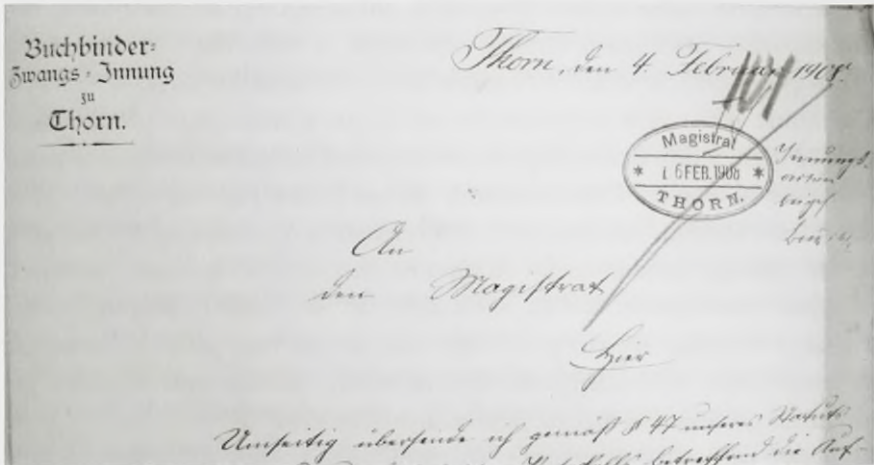 Buchbinder=
Zwangs=Innung
zu
Thorn.
Thorn, den 4. Februar 1908.
Magistrat
* 6 FEB. 1908 *
THORN.
Innungs-
An
den Magistrat
Hier
Umseitig übersende ich gemäß § 47 unseres Statuts
betreffend die Auf-